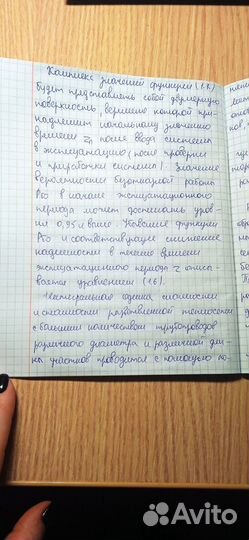 Комплекс значений функции (1.8)
будет представлять собой двухмерную
поверхность, вершина которой при-
надлежит начальному значению
времени τ₁ после ввода системы
в эксплуатацию (после проверки
и приработки системы). Значение
вероятности безотказной работы
Рбо в начале эксплуатационного
периода может достигать уров-
ня 0,95 и выше. Убывание функции
Рбо и соответствующее снижение
надежности в течение времени
эксплуатационного периода τ описы-
вается уравнением (1.6).
сложности
и стоимости разветвленной теплосети
с большим количеством трубопроводов
различного диаметра и различной дли-
ны участков проводится с помощью по-
Avito